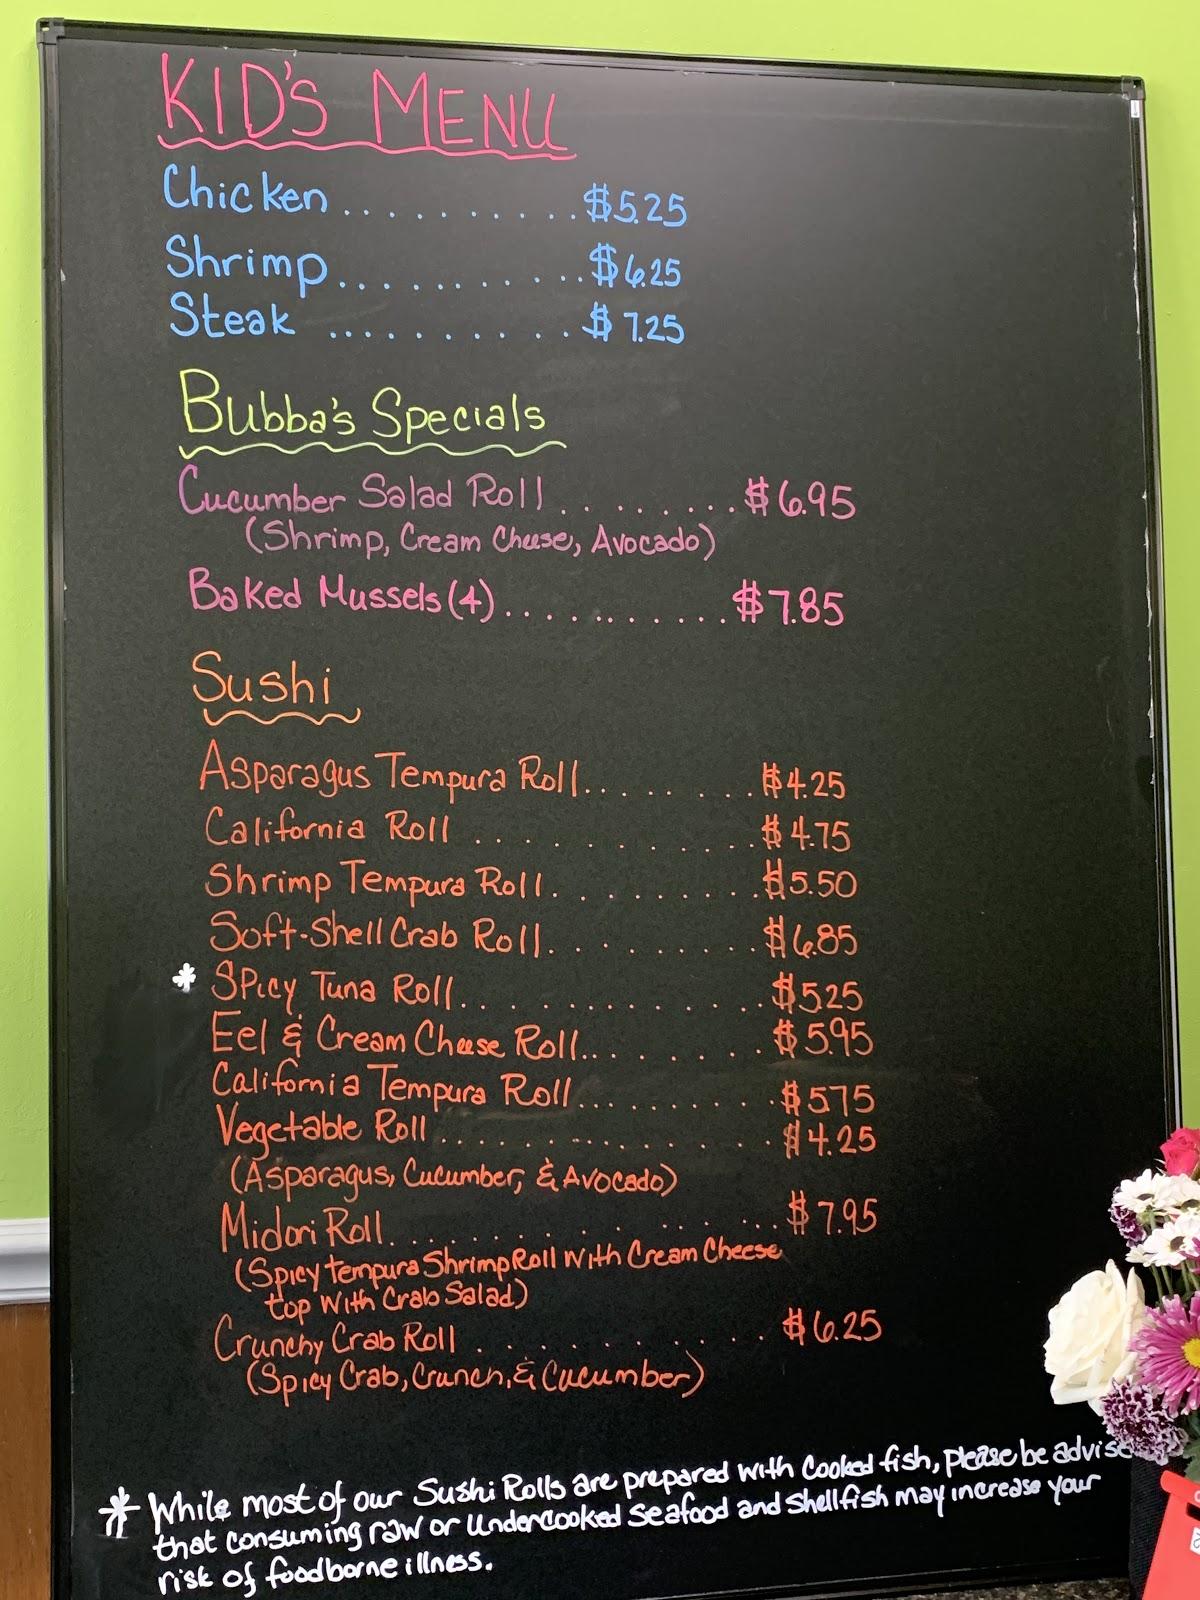 KID'S MENU
Chicken .......... $5.25
Shrimp........... $6.25
Steak .......... $7.25
Bubba's Specials
Cucumber Salad Roll ........ $6.95
(Shrimp, Cream Cheese, Avocado)
Baked Mussels (4)........... $7.85
Sushi
Asparagus Tempura Roll........ $4.25
California Roll .......... $4.75
Shrimp Tempura Roll......... $5.50
Soft-Shell Crab Roll......... $6.85
* Spicy Tuna Roll............ $5.25
Eel & Cream Cheese Roll........ $5.95
California Tempura Roll.......... $5.75
Vegetable Roll ............. $4.25
(Asparagus, Cucumber, & Avocado)
Midori Roll............. $7.95
(Spicy tempura Shrimp Roll With Cream Cheese
top With Crab Salad)
Crunchy Crab Roll .......... $6.25
(Spicy Crab, Crunch, & Cucumber)
* While most of our Sushi Rolls are prepared with Cooked fish, please be advise
that consuming raw or Undercooked Seafood and shellfish may increase your
risk of foodborne illness.